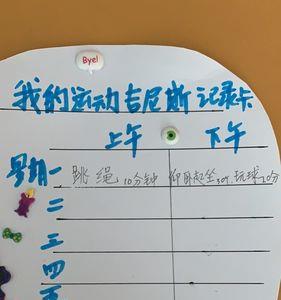 Bye!
我的运动吉尼斯记录卡
上午 下午
星期一 跳绳10分钟 仰卧起坐30个,玩球20分
二
三
四
五